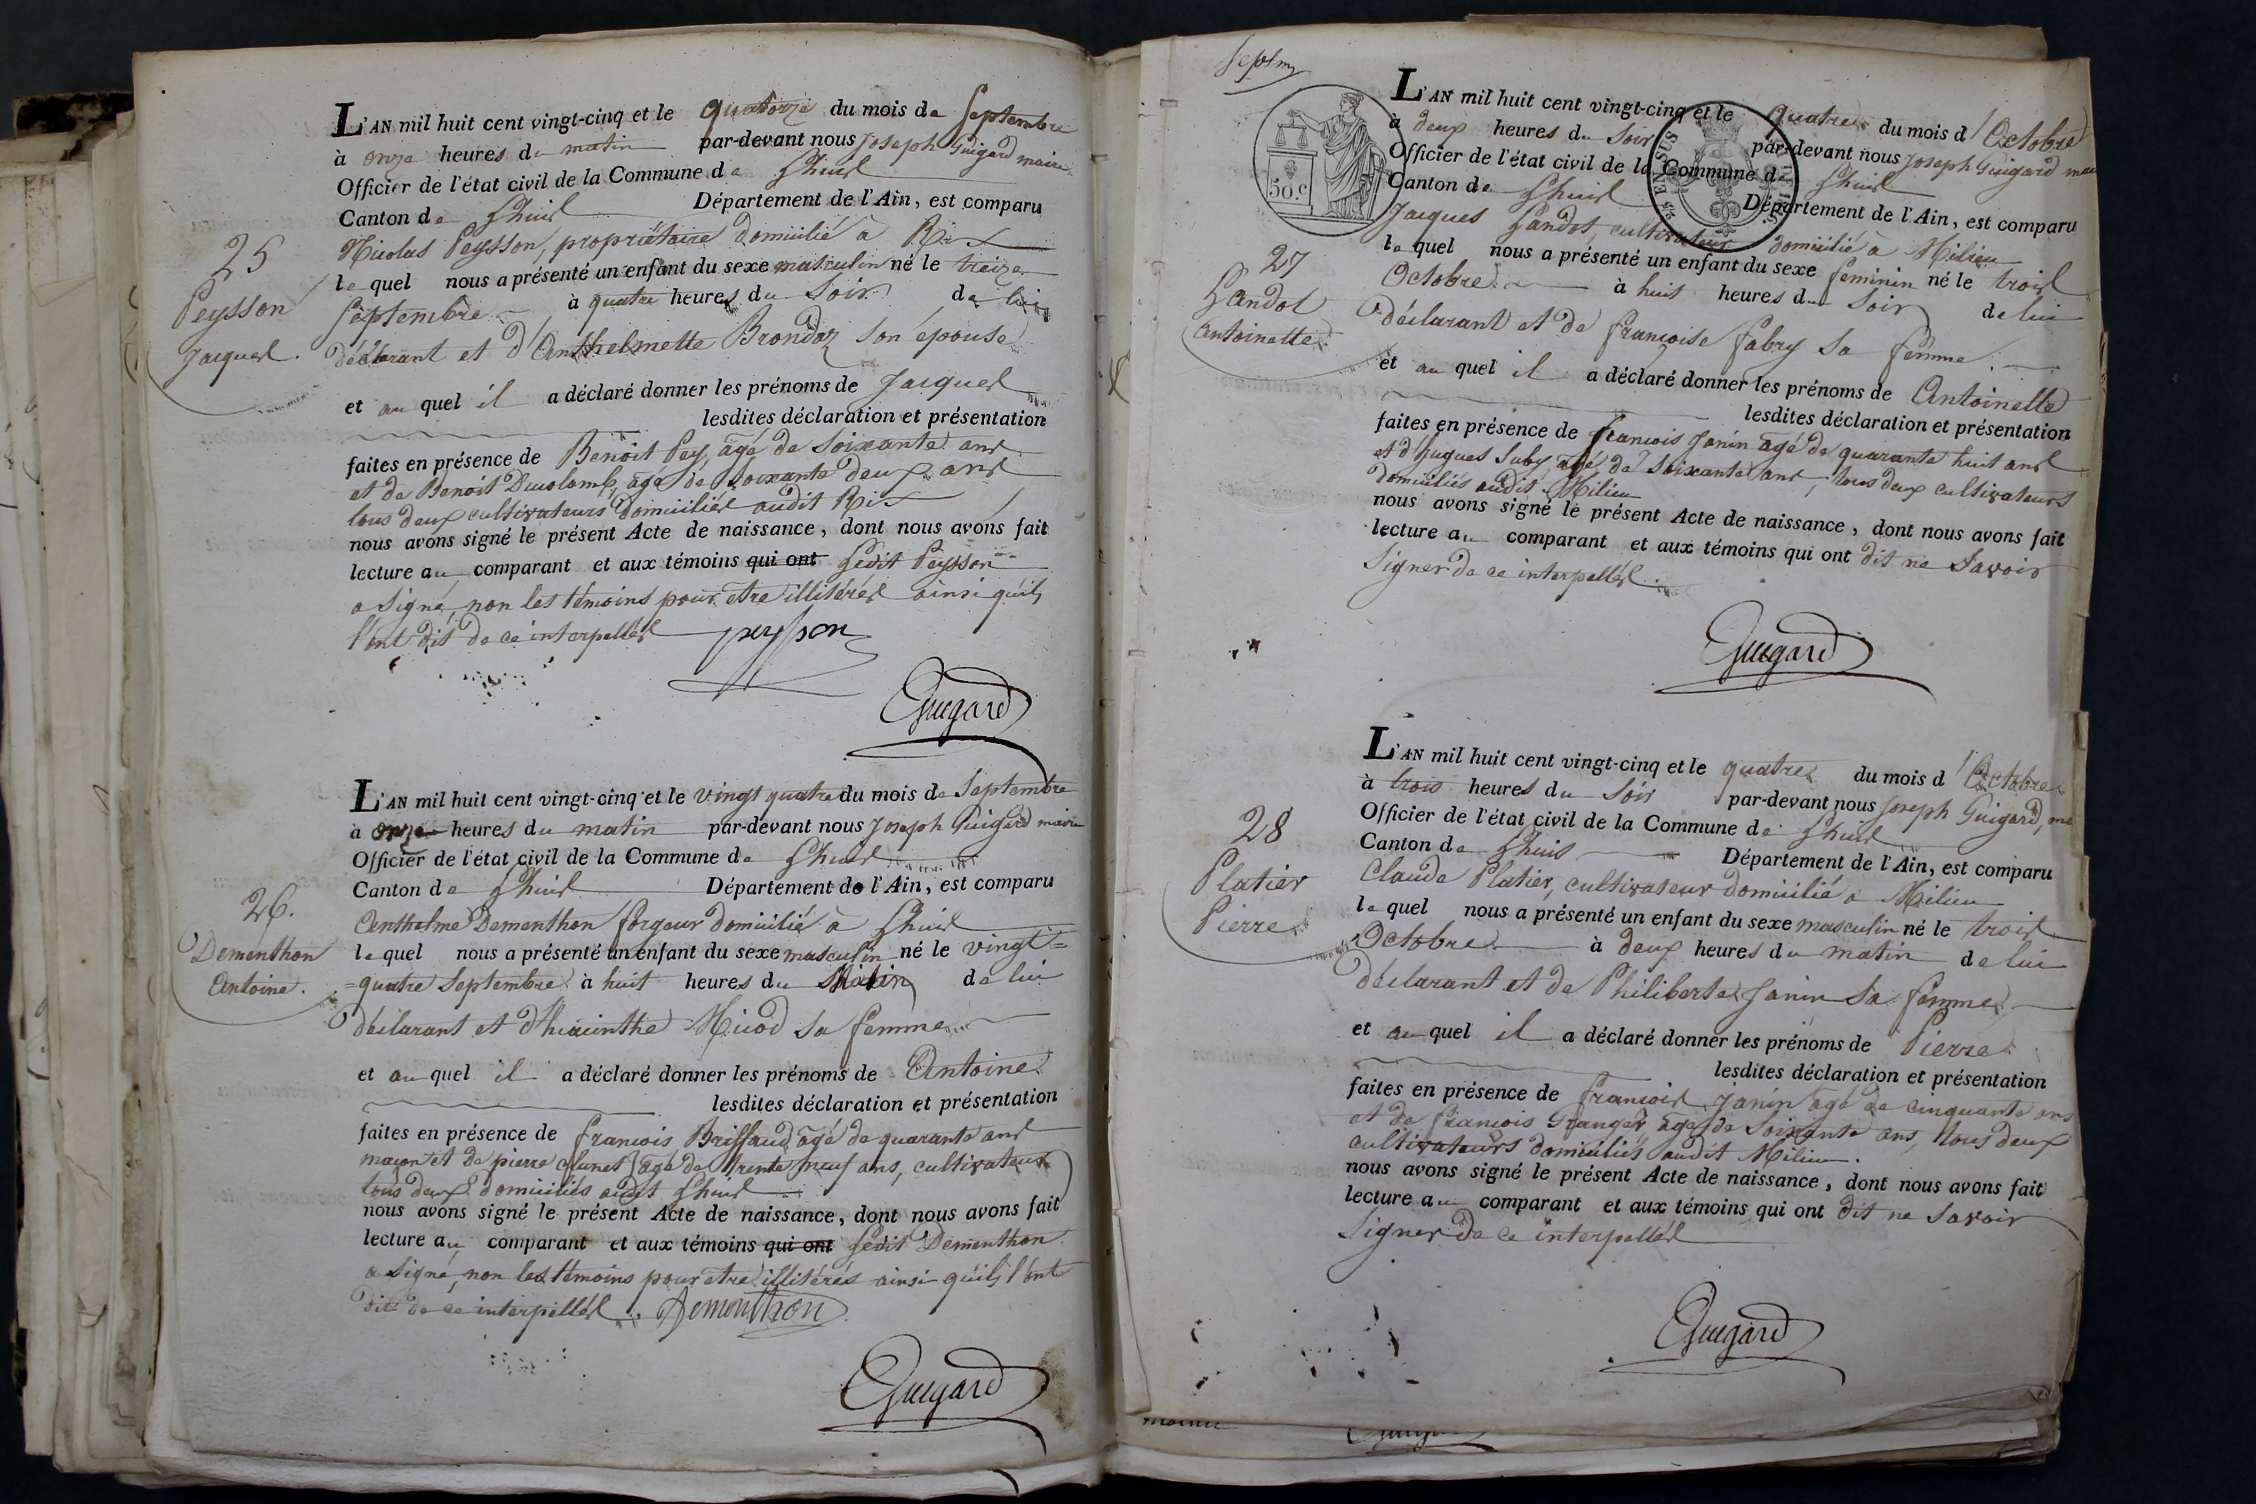 25
Peysson
Jacques.
L'AN mil huit cent vingt-cinq et le quatorze du mois de Septembre
à onze heures du matin par-devant nous Joseph Guigard maire
Officier de l'état civil de la Commune de Lhuis
Canton de Lhuis Département de l'Ain, est comparu
Nicolas Peysson, propriétaire domicilié à Rix
lequel nous a présenté un enfant du sexe masculin né le treize
Septembre à quatre heures du Soir de lui
déclarant et d'Anthelmette Brondaz son épouse
et auquel il a déclaré donner les prénoms de Jacques
lesdites déclaration et présentation
faites en présence de Benoit Pey, agé de Soixante ans
et de Benoit Ducolomb, agé de Soixante deux ans
tous deux cultivateurs domiciliés audit Rix
nous avons signé le présent Acte de naissance, dont nous avons fait
lecture au comparant et aux témoins qui ont ledit Peysson
a signé, non les témoins pour etre illitérés ainsi qu'ils
l'ont dit de ce interpellés peysson
Guigard
26.
Dementhon
Antoine.
L'AN mil huit cent vingt-cinq et le vingt quatre du mois de Septembre
à onze heures du matin par-devant nous Joseph Guigard maire
Officier de l'état civil de la Commune de Lhuis
Canton de Lhuis Département de l'Ain, est comparu
Anthelme Dementhon forgeur domicilié à Lhuis
lequel nous a présenté un enfant du sexe masculin né le vingt=
=quatre Septembre à huit heures du Matin de lui
déclarant et d'hiacinthe Nicod sa femme
et auquel il a déclaré donner les prénoms de Antoine
lesdites déclaration et présentation
faites en présence de francois Briffaud, agé de quarante ans
maçon et de pierre Clunet, agé de trente neuf ans, cultivateur
tous deux domiciliés audit Lhuis
nous avons signé le présent Acte de naissance, dont nous avons fait
lecture au comparant et aux témoins qui ont ledit Dementhon
a signé, non les témoins pour etre illitérés ainsi qu'ils l'ont
dit de ce interpellés. Dementhon
Guigard
Septm
50 c.
EN SUS
27
Gandot
Antoinette
L'AN mil huit cent vingt-cinq et le quatre du mois d'Octobre
à deux heures du Soir par-devant nous Joseph Guigard mai
Officier de l'état civil de la Commune de Lhuis
Canton de Lhuis Département de l'Ain, est comparu
Jacques Gandot cultivateur domicilié à Milieu
lequel nous a présenté un enfant du sexe féminin né le trois
Octobre à huit heures du Soir de lui
déclarant et de francoise fabry sa femme
et auquel il a déclaré donner les prénoms de Antoinette
lesdites déclaration et présentation
faites en présence de francois Janin agé de quarante huit ans
et d'hugues Suby, agé de Soixante ans, tous deux cultivateurs
domiciliés audit Milieu
nous avons signé le présent Acte de naissance, dont nous avons fait
lecture au comparant et aux témoins qui ont dit ne Savoir
Signer de ce interpellés.
Guigard
28
Platier
Pierre
L'AN mil huit cent vingt-cinq et le quatre du mois d'Octobre
à trois heures du Soir par-devant nous Joseph Guigard, mai
Officier de l'état civil de la Commune de Lhuis
Canton de Lhuis Département de l'Ain, est comparu
Claude Platier, cultivateur domicilié a Milieu
lequel nous a présenté un enfant du sexe masculin né le trois
Octobre à deux heures du matin de lui
déclarant et de Philiberte Janin Sa femme
et auquel il a déclaré donner les prénoms de Pierre
lesdites déclaration et présentation
faites en présence de francois Janin agé de cinquante ans
et de francois Granger agé de Soixante ans, tous deux
cultivateurs domiciliés audit Milieu.
nous avons signé le présent Acte de naissance, dont nous avons fait
lecture au comparant et aux témoins qui ont dit ne Savoir
Signer de ce interpellés
Guigard